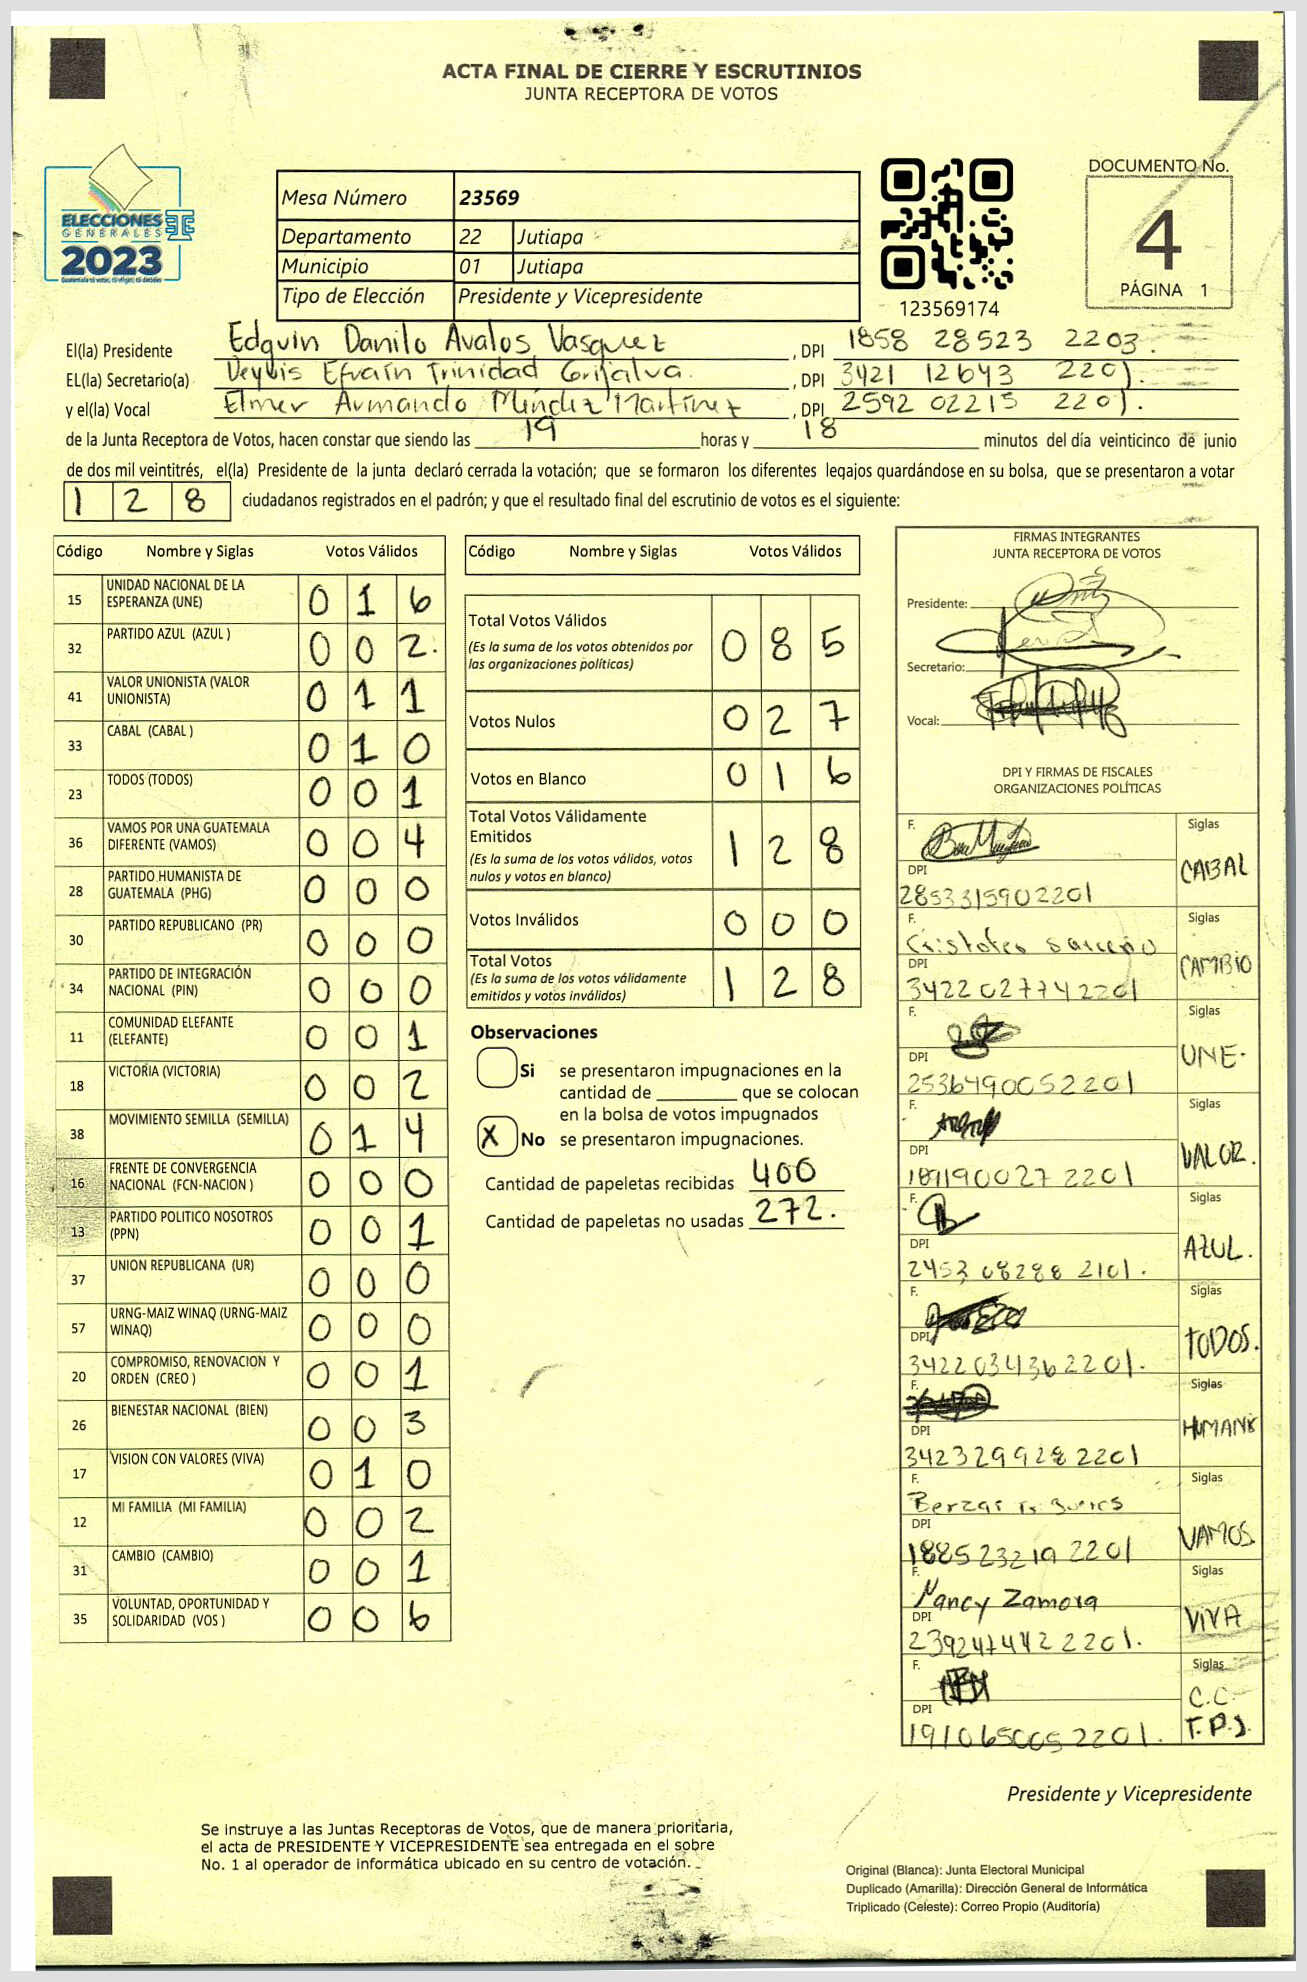 ACTA FINAL DE CIERRE Y ESCRUTINIOS
JUNTA RECEPTORA DE VOTOS
ELECCIONES
GENERALES
2023
Mesa Número 23569
Departamento 22 Jutiapa
Municipio 01 Jutiapa
Tipo de Elección Presidente y Vicepresidente
123569174
DOCUMENTO No.
4
PÁGINA 1
El(la) Presidente Edguin Danilo Avalos Vasquez, DPI 1858 28523 2203.
EL(la) Secretario(a) Deybis Efraín Trinidad Grijalva., DPI 3421 12643 2201.
y el(la) Vocal Elmer Armando Méndez Martínez, DPI 2592 02215 2201.
de la Junta Receptora de Votos, hacen constar que siendo las 19 horas y 18 minutos del día veinticinco de junio
de dos mil veintitrés, el(la) Presidente de la junta declaró cerrada la votación; que se formaron los diferentes legajos guardándose en su bolsa, que se presentaron a votar
128 ciudadanos registrados en el padrón; y que el resultado final del escrutinio de votos es el siguiente:
Código Nombre y Siglas Votos Válidos
15 UNIDAD NACIONAL DE LA ESPERANZA (UNE) 0 1 6
32 PARTIDO AZUL (AZUL ) 0 0 2.
41 VALOR UNIONISTA (VALOR UNIONISTA) 0 1 1
33 CABAL (CABAL ) 0 1 0
23 TODOS (TODOS) 0 0 1
36 VAMOS POR UNA GUATEMALA DIFERENTE (VAMOS) 0 0 4
28 PARTIDO HUMANISTA DE GUATEMALA (PHG) 0 0 0
30 PARTIDO REPUBLICANO (PR) 0 0 0
34 PARTIDO DE INTEGRACIÓN NACIONAL (PIN) 0 0 0
11 COMUNIDAD ELEFANTE (ELEFANTE) 0 0 1
18 VICTORIA (VICTORIA) 0 0 2
38 MOVIMIENTO SEMILLA (SEMILLA) 0 1 4
16 FRENTE DE CONVERGENCIA NACIONAL (FCN-NACION ) 0 0 0
13 PARTIDO POLITICO NOSOTROS (PPN) 0 0 1
37 UNION REPUBLICANA (UR) 0 0 0
57 URNG-MAIZ WINAQ (URNG-MAIZ WINAQ) 0 0 0
20 COMPROMISO, RENOVACION Y ORDEN (CREO ) 0 0 1
26 BIENESTAR NACIONAL (BIEN) 0 0 3
17 VISION CON VALORES (VIVA) 0 1 0
12 MI FAMILIA (MI FAMILIA) 0 0 2
31 CAMBIO (CAMBIO) 0 0 1
35 VOLUNTAD, OPORTUNIDAD Y SOLIDARIDAD (VOS ) 0 0 6
Código Nombre y Siglas Votos Válidos
Total Votos Válidos 0 8 5
(Es la suma de los votos obtenidos por las organizaciones políticas)
Votos Nulos 0 2 7
Votos en Blanco 0 1 6
Total Votos Válidamente Emitidos 1 2 8
(Es la suma de los votos válidos, votos nulos y votos en blanco)
Votos Inválidos 0 0 0
Total Votos 1 2 8
(Es la suma de los votos válidamente emitidos y votos inválidos)
Observaciones
Si se presentaron impugnaciones en la
cantidad de ________ que se colocan
en la bolsa de votos impugnados
X No se presentaron impugnaciones.
Cantidad de papeletas recibidas 400
Cantidad de papeletas no usadas 272.
FIRMAS INTEGRANTES
JUNTA RECEPTORA DE VOTOS
Presidente:
Secretario:
Vocal:
DPI Y FIRMAS DE FISCALES
ORGANIZACIONES POLÍTICAS
F. Siglas
DPI CABAL
2853315902201
F. Siglas
DPI CAMBIO
3422027742201
F. Siglas
DPI UNE.
2536490052201
F. Siglas
DPI VALOR.
189190027 2201
F. Siglas
DPI AZUL.
2453 08288 2101.
F. Siglas
DPI TODOS.
3422034362201.
F. Siglas
DPI
3423299282201
F. Siglas
DPI VAMOS.
188523219 2201
F. Nancy Zamora Siglas
DPI VIVA
2392474422201.
F. Siglas
DPI C.C.
191065005 2201. T.P.J.
Presidente y Vicepresidente
Se instruye a las Juntas Receptoras de Votos, que de manera prioritaria,
el acta de PRESIDENTE Y VICEPRESIDENTE sea entregada en el sobre
No. 1 al operador de informática ubicado en su centro de votación.
Original (Blanca): Junta Electoral Municipal
Duplicado (Amarilla): Dirección General de Informática
Triplicado (Celeste): Correo Propio (Auditoría)